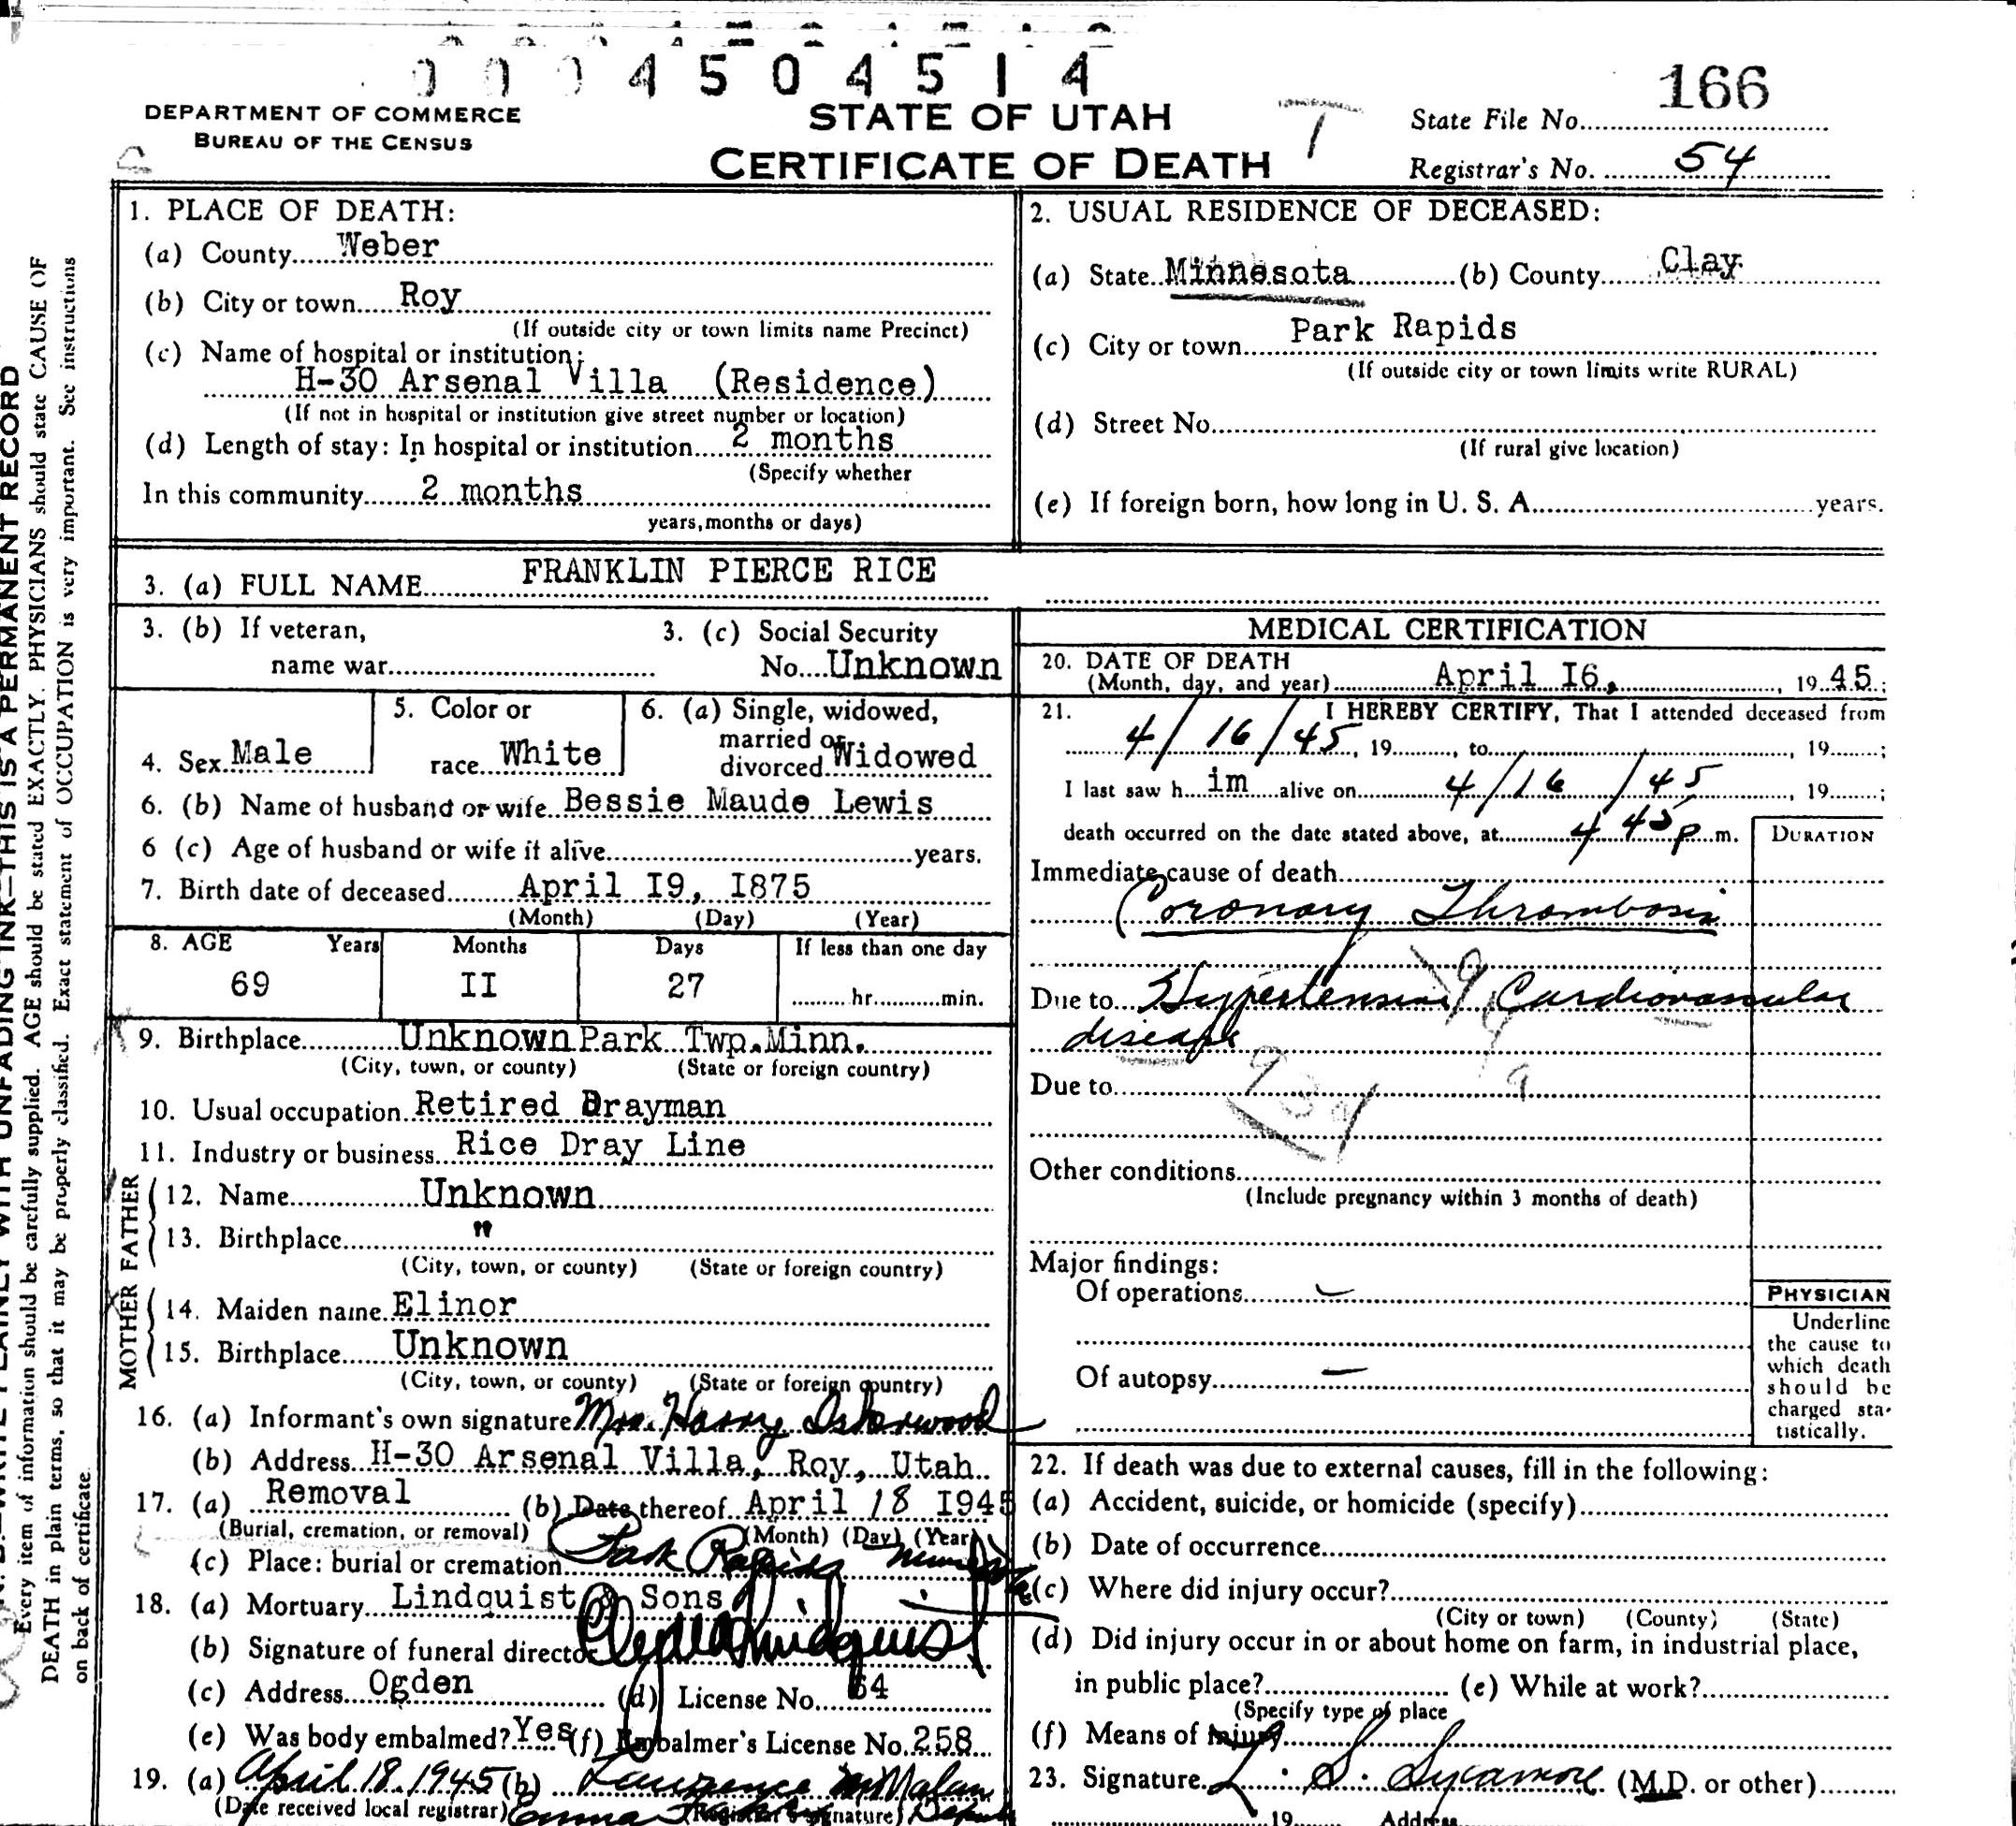 0004504514
DEPARTMENT OF COMMERCE
BUREAU OF THE CENSUS
STATE OF UTAH
CERTIFICATE OF DEATH
T
State File No. 166
Registrar's No. 54
1. PLACE OF DEATH:
(a) County Weber
(b) City or town Roy
(If outside city or town limits name Precinct)
(c) Name of hospital or institution:
H-30 Arsenal Villa (Residence)
(If not in hospital or institution give street number or location)
(d) Length of stay: In hospital or institution 2 months
(Specify whether
In this community 2 months
years, months or days)
2. USUAL RESIDENCE OF DECEASED:
(a) State Minnesota (b) County Clay
(c) City or town Park Rapids
(If outside city or town limits write RURAL)
(d) Street No.
(If rural give location)
(e) If foreign born, how long in U. S. A. years.
3. (a) FULL NAME FRANKLIN PIERCE RICE
3. (b) If veteran,
name war
3. (c) Social Security
No. Unknown
4. Sex Male
5. Color or
race White
6. (a) Single, widowed,
married or
divorced Widowed
6. (b) Name of husband or wife Bessie Maude Lewis
6 (c) Age of husband or wife if alive years.
7. Birth date of deceased April I9, I875
(Month) (Day) (Year)
8. AGE Years Months Days If less than one day
69 II 27 hr. min.
9. Birthplace Unknown Park Twp. Minn.
(City, town, or county) (State or foreign country)
10. Usual occupation Retired Drayman
11. Industry or business Rice Dray Line
FATHER
12. Name Unknown
13. Birthplace "
(City, town, or county) (State or foreign country)
MOTHER
14. Maiden name Elinor
15. Birthplace Unknown
(City, town, or county) (State or foreign country)
16. (a) Informant's own signature Mrs. Harry Isherwood
(b) Address H-30 Arsenal Villa, Roy, Utah
17. (a) Removal (b) Date thereof April 18 I945
(Burial, cremation, or removal) (Month) (Day) (Year)
(c) Place: burial or cremation Park Rapids Minnesota
18. (a) Mortuary Lindquist & Sons
(b) Signature of funeral director Clyde Lindquist
(c) Address Ogden (d) License No. 64
(e) Was body embalmed? Yes (f) Embalmer's License No. 258
19. (a) April 18. 1945 (b) Lawrence Malan
(Date received local registrar) Emma (Registrar's signature) Deputy
MEDICAL CERTIFICATION
20. DATE OF DEATH
(Month, day, and year) April I6, 1945;
21. I HEREBY CERTIFY, That I attended deceased from
4/16/45, 19 , to , 19 ;
I last saw him alive on 4/16/45, 19 ;
death occurred on the date stated above, at 4 45 p m.
DURATION
Immediate cause of death
Coronary Thrombosis
Due to Hypertensive Cardiovascular
disease
Due to
Other conditions
(Include pregnancy within 3 months of death)
Major findings:
Of operations -
Of autopsy -
PHYSICIAN
Underline
the cause to
which death
should be
charged sta-
tistically.
22. If death was due to external causes, fill in the following:
(a) Accident, suicide, or homicide (specify)
(b) Date of occurrence
(c) Where did injury occur?
(City or town) (County) (State)
(d) Did injury occur in or about home on farm, in industrial place,
in public place? (e) While at work?
(Specify type of place
(f) Means of injury
23. Signature L. S. Sycamore (M.D. or other)
19 Address
THIS IS A PERMANENT RECORD
Every item of information should be carefully supplied. AGE should be stated EXACTLY. PHYSICIANS should state CAUSE OF
DEATH in plain terms, so that it may be properly classified. Exact statement of OCCUPATION is very important. See instructions
on back of certificate.